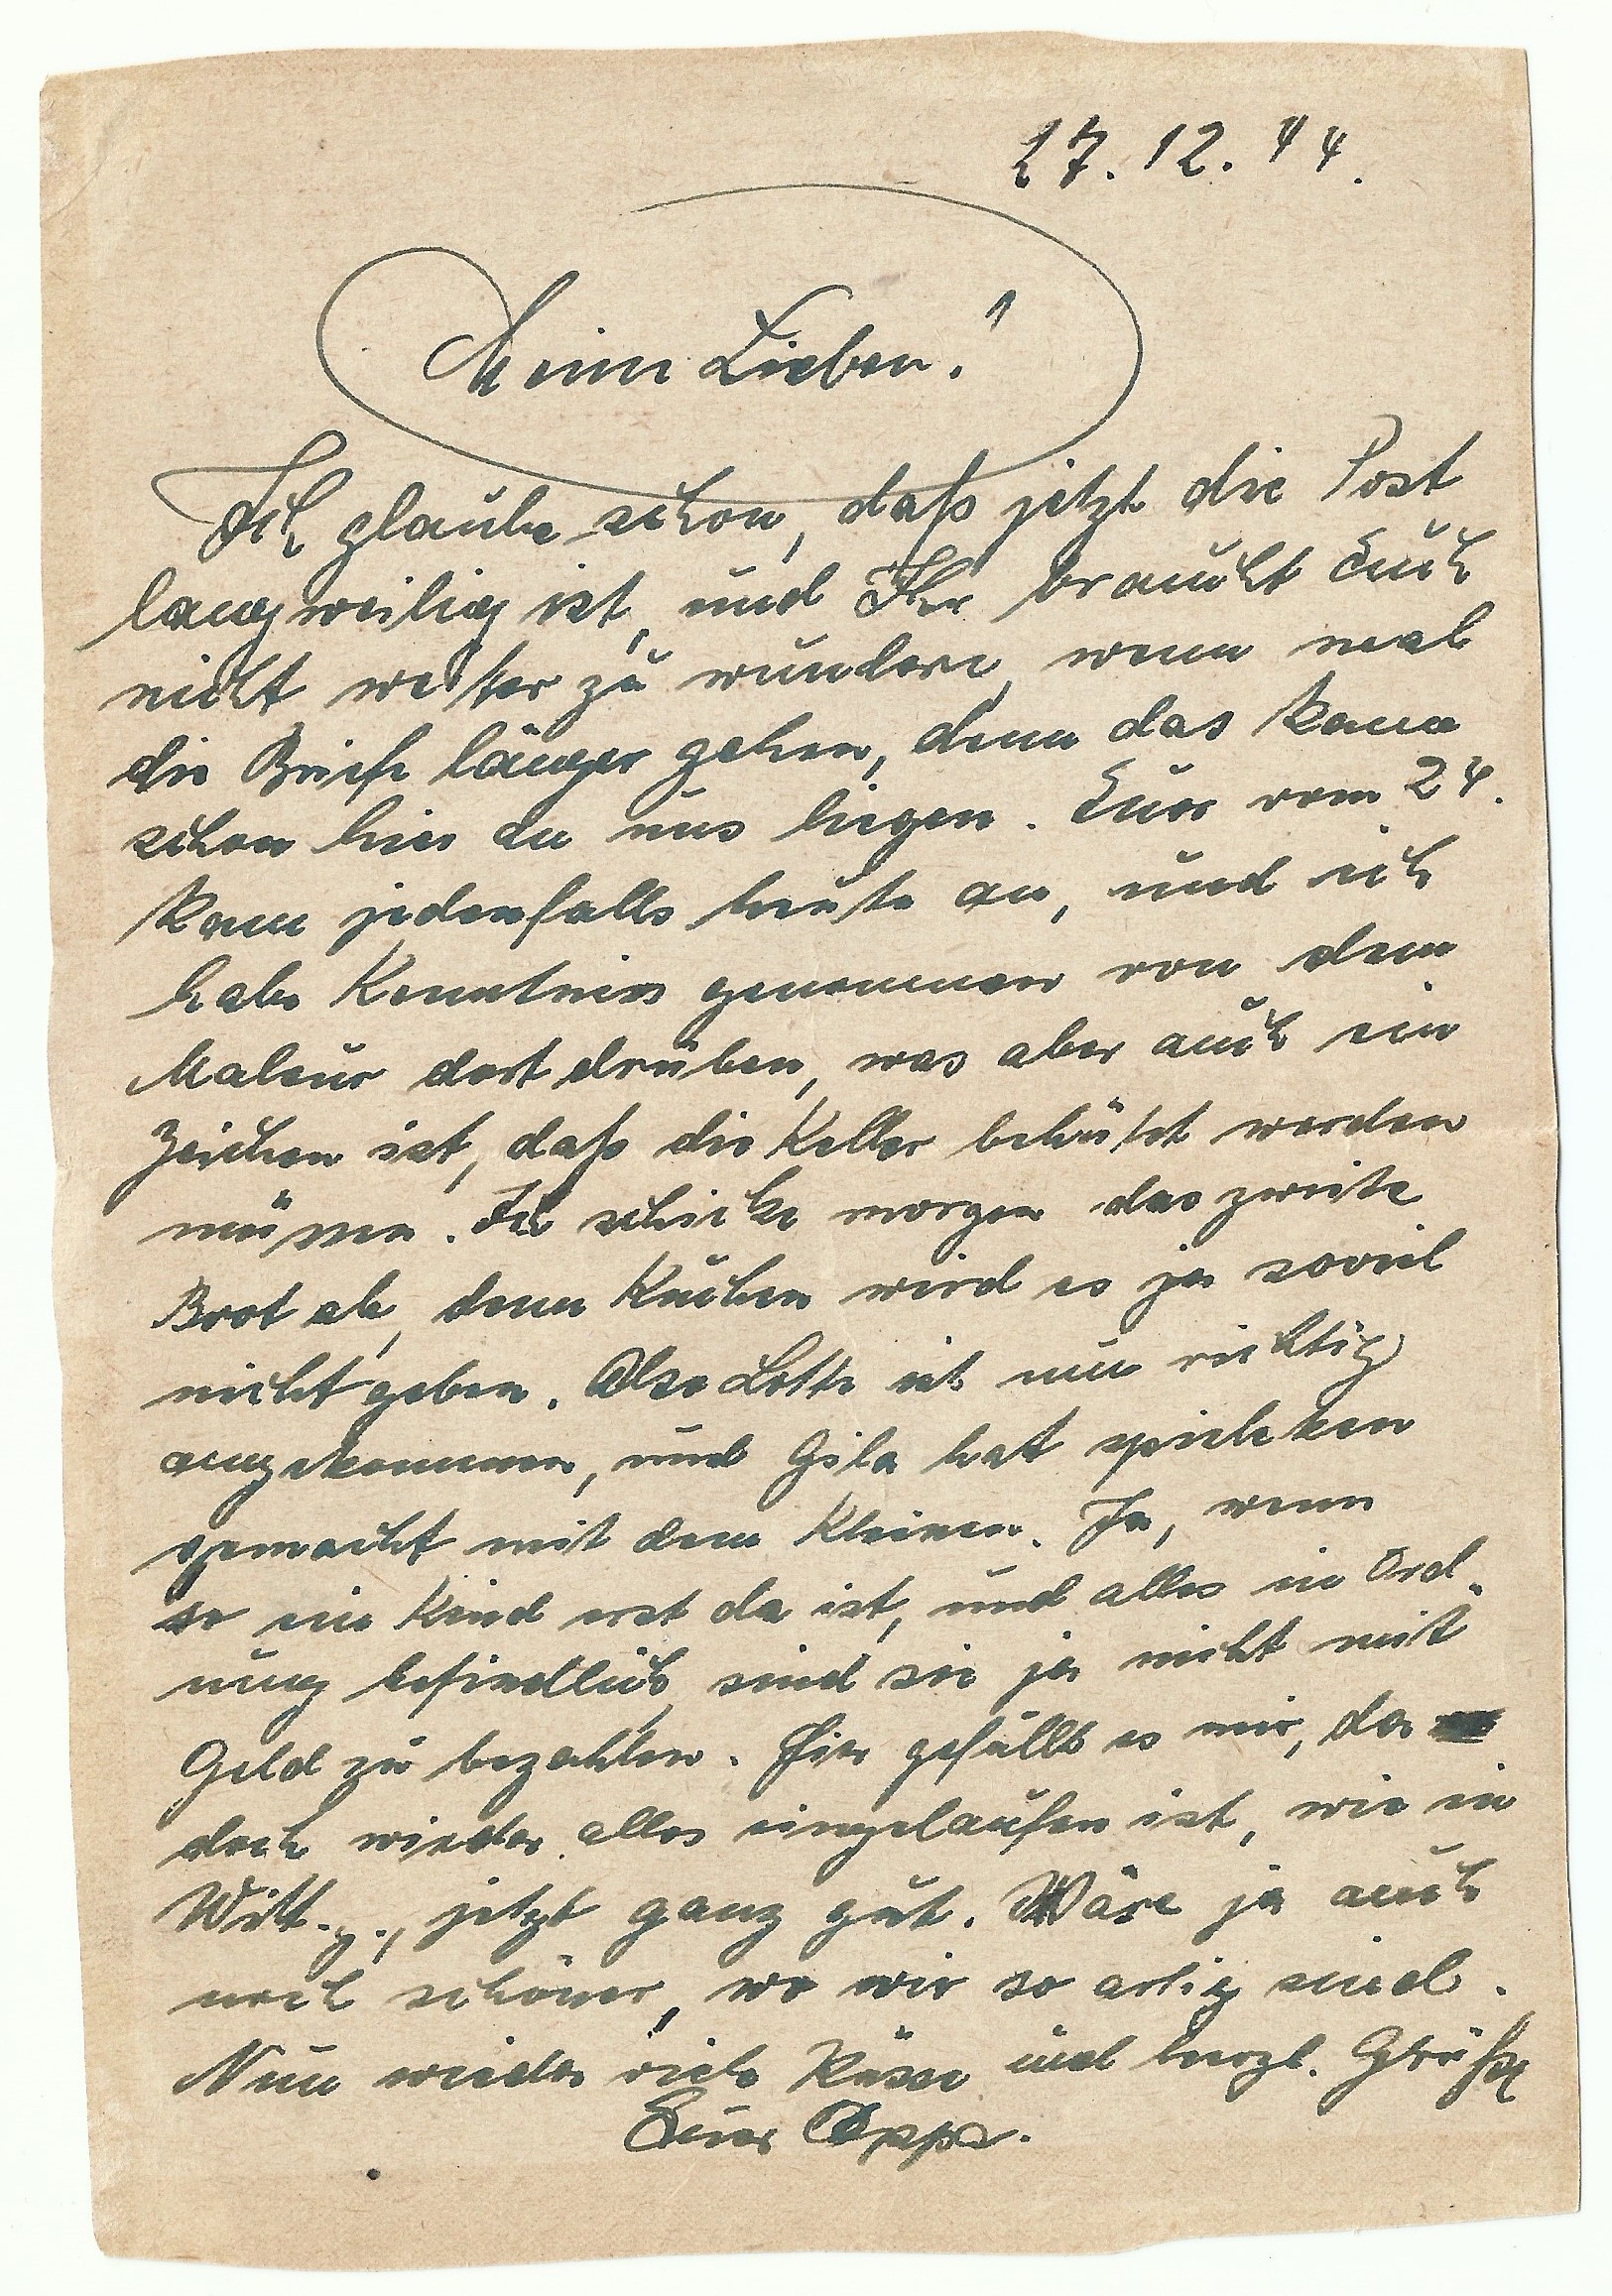 27.12.44.
Meine Lieben!
Ich glaube schon, daß jetzt die Post
langweilig ist, und Ihr braucht Euch
nicht weiter zu wundern, wenn mal
die Briefe länger gehen, denn das kann
schon hier an uns liegen. Euer vom 24.
kam jedenfalls heute an, und ich
habe Kenntniss genommen von dem
Maleur dort drüben, was aber auch ein
Zeichen ist, daß die Keller behütet werden
müssen. Ich schicke morgen das zweite
Brot ab, denn Kuchen wird es ja soviel
nicht geben. Also Lotte ist nun richtig
angekommen, und Gila hat
gemacht mit dem Kleinen. Ja, wenn
so ein Kind erst da ist, und alles in Ord-
nung befindlich, sind sie ja nicht mit
Geld zu bezahlen. Hier gefällt es mir, da
doch wieder alles eingelaufen ist, wie in
Witt.g., jetzt ganz gut. Wäre ja auch
noch schöner, wo wir so artig sind.
Nun wieder viele Küsse und herzl. Grüße
Euer Oppa.